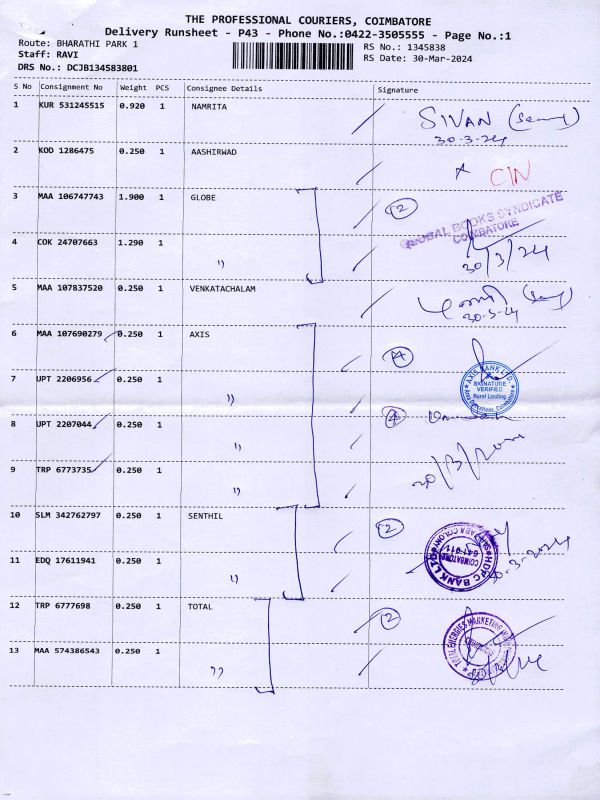 THE PROFESSIONAL COURIERS, COIMBATORE
Delivery Runsheet - P43 - Phone No.:0422-3505555 - Page No.:1
Route: BHARATHI PARK 1
RS No.: 1345838
Staff: RAVI
RS Date: 30-Mar-2024
DRS No.: DCJB134583801
S No Consignment No Weight PCS Consignee Details Signature
1 KUR 531245515 0.920 1 NAMRITA SIVAN
30-3-24
2 KOD 1286475 0.250 1 AASHIRWAD CIN
3 MAA 106747743 1.900 1 GLOBE 2
GLOBAL BOOKS SYNDICATE
COIMBATORE
4 COK 24707663 1.290 1 " 30/3/24
5 MAA 107837520 0.250 1 VENKATACHALAM
30-3-24
6 MAA 107690279 0.250 1 AXIS 4
AXIS BANK LTD.
SIGNATURE
VERIFIED
Rural Lending
7 UPT 2206956 0.250 1 "
8 UPT 2207044 0.250 1 "
9 TRP 6773735 0.250 1 "
10 SLM 342762797 0.250 1 SENTHIL 2
HDFC BANK LTD
COIMBATORE
641 011
11 EDQ 17611941 0.250 1 " 30-3-2024
12 TRP 6777698 0.250 1 TOTAL 2
TOTAL ENERGIES MARKETING
13 MAA 574386543 0.250 1 "